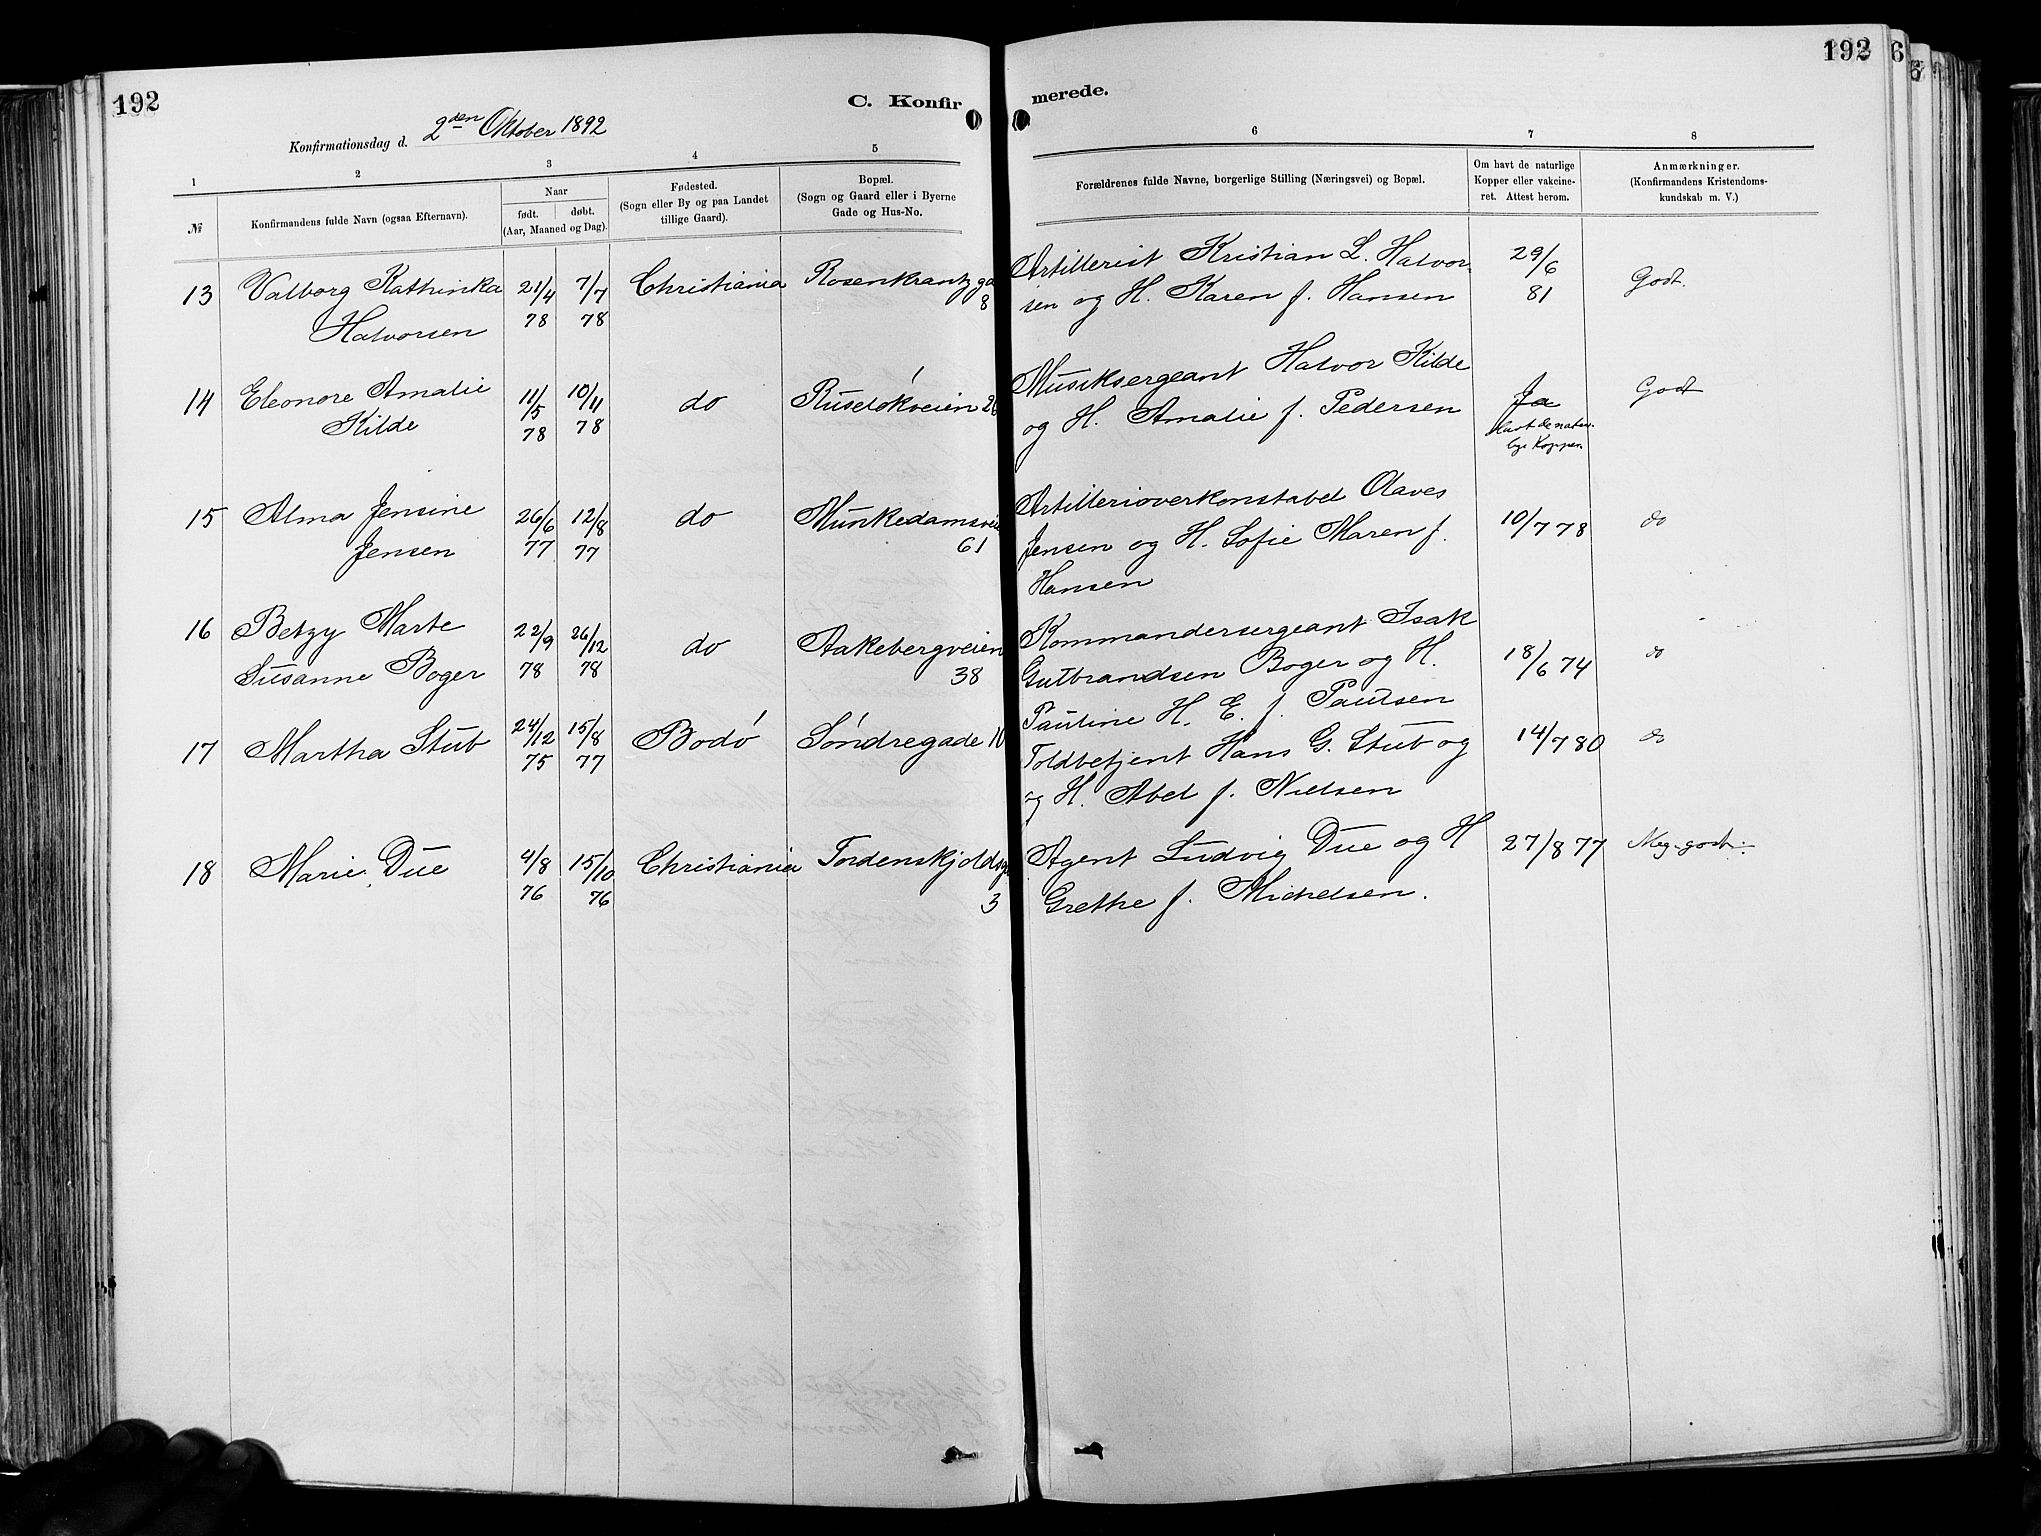 192
C. Konfirmerede.
192
6
Konfirmationsdag d. 2den Oktober 1892
1 2 3 4 5 6 7 8
№
Konfirmandens fulde Navn (ogsaa Efternavn).
Naar
født. døbt.
(Aar, Maaned og Dag).
Fødested.
(Sogn eller By og paa Landet
tillige Gaard).
Bopæl.
(Sogn og Gaard eller i Byerne
Gade og Hus-No.
Forældrenes fulde Navne, borgerlige Stilling (Næringsvei) og Bopæl.
Om havt de naturlige
Kopper eller vakcine-
ret. Attest herom.
Anmærkninger.
(Konfirmandens Kristendoms-
kundskab m. V.)
13 Valborg Kathinka 21/4 7/7 Christiania Rosenkrantzga Artillerist Kristian L. Halvor- 29/6
Halvorsen 78 78 8 sen og H. Karen f. Hansen 81 Godt.
14 Eleonore Amalie 11/5 10/11 do Ruseløkveien 26 Musiksergeant Halvor Kilde Ja Godt
Kilde 78 78 og H. Amalie f. Pedersen
havt de natur-
lige Kopper.
15 Alma Jensine 26/6 12/8 do Munkedamsvei Artillerioverkonstabel Olaves 10/7 78 do
Jensen 77 77 61 Jensen og H. Sofie Maren f.
Hansen
16 Betzy Marte 22/9 26/12 do Aakebergveien Kommandersergeant Isak 18/6 74 do
Susanne Boger 78 78 38 Gulbrandsen Boger og H.
Pauline H. E. f. Paulsen
17 Martha Stub 24/12 15/8 Bodø Søndregade 10 Toldbetjent Hans G. Stub og 14/7 80 do
75 77 og H. Abel f. Nielsen
18 Marie Due 4/8 15/10 Christiania Tordenskjoldsg Agent Ludvig Due og H 27/8 77 Meg. godt.
76 76 3 Grethe f. Michelsen.